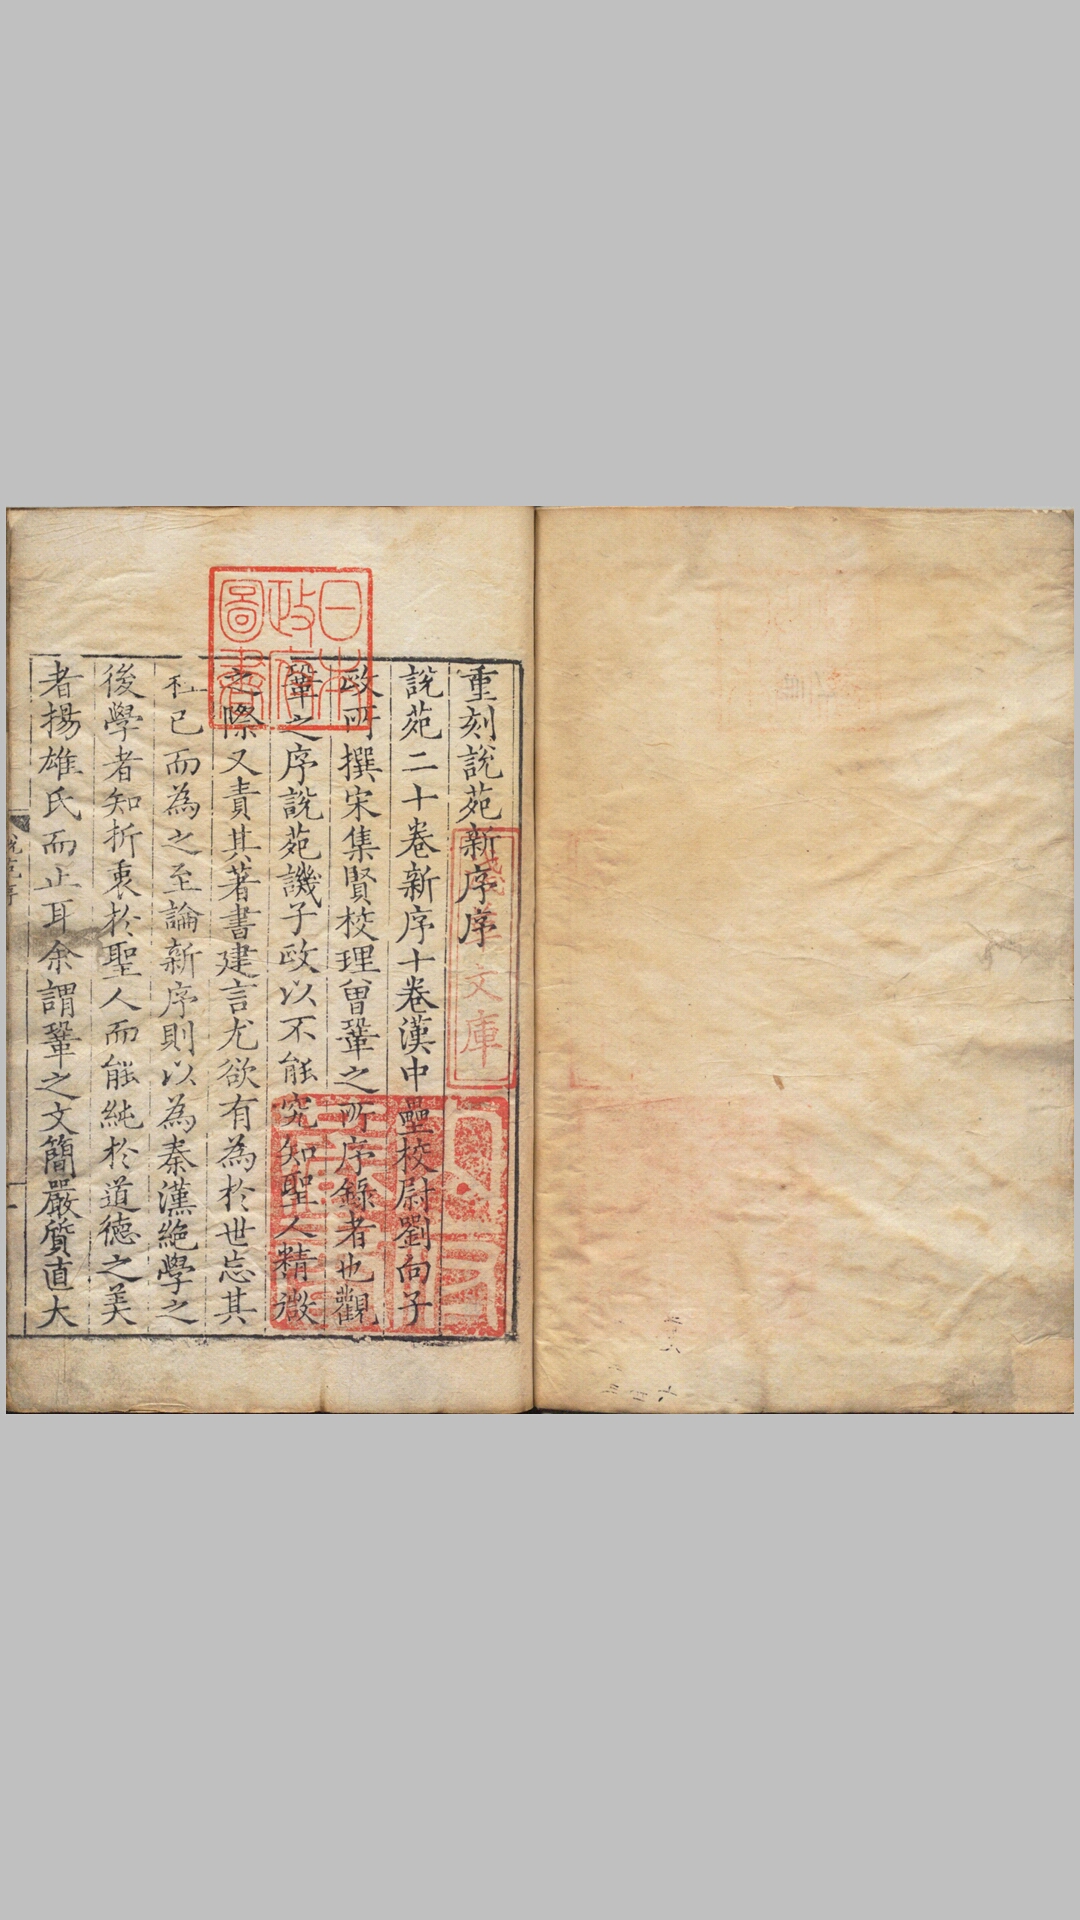 重刻說苑新序序
說苑二十卷新序十卷漢中壘校尉劉向子
政所撰宋集賢校理曾鞏之所序錄者也觀
鞏之序說苑譏子政以不能究知聖人精微
之際又責其著書建言尤欲有為於世忘其
枉己而為之至論新序則以為秦漢絕學之
後學者知折衷於聖人而能純於道德之美
者揚雄氏而止耳余謂鞏之文簡嚴質直大
日本
政府
圖書
淺草文庫
說苑序